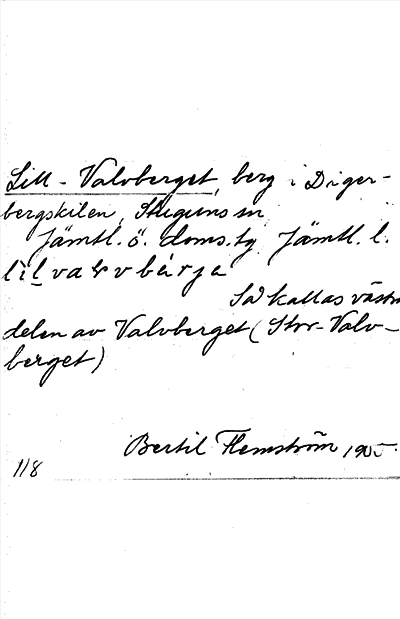 Lill-Valvberget, berg i Diger-
bergskilen, Stuguns sn
Jämtl. ö. doms.tg Jämtl. l.
Så kallas västra
delen av Valvberget (Stor-Valv-
berget)
Bertil Flemström
118